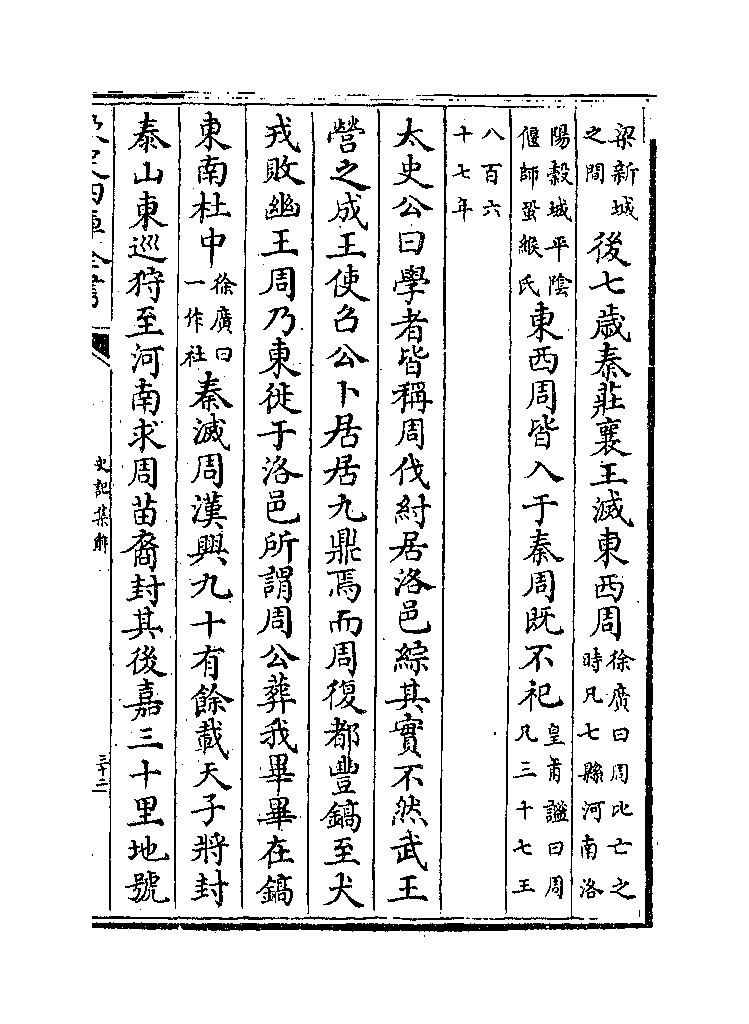 梁新城之間後七歲秦莊襄王滅東西周徐廣曰周比亡之時凡七縣河南洛
陽穀城平陰偃師鞏緱氏東西周皆入于秦周既不祀皇甫謐曰周凡三十七王
八百六十七年
太史公曰學者皆稱周伐紂居洛邑綜其實不然武王
營之成王使召公卜居居九鼎焉而周復都豐鎬至犬
戎敗幽王周乃東徙于洛邑所謂周公葬我畢畢在鎬
東南杜中徐廣曰一作社秦滅周漢興九十有餘載天子將封
泰山東巡狩至河南求周苗裔封其後嘉三十里地號
欽定四庫全書
史記集解
三十二